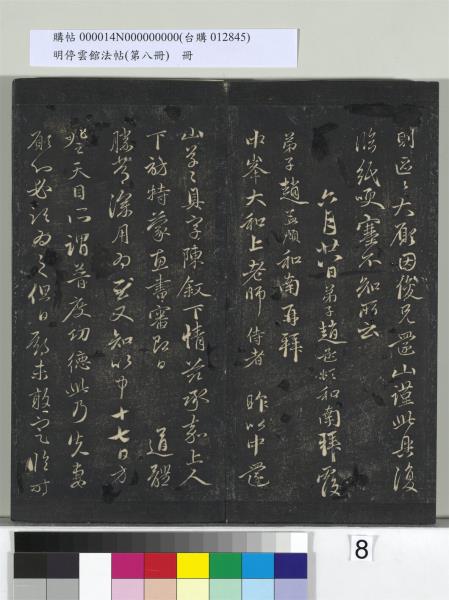 購帖 000014N000000000(台購 012845)
明停雲館法帖(第八冊) 冊
則區區大願因俊兄還山謹此具復
臨紙哽塞不知所云
六月廿八日弟子趙孟頫和南拜覆
弟子趙孟頫和南再拜
中峯大和上老師侍者 昨以中還
山草草具字陳敘下情茲承上人
下訪特蒙惠書審即日 道體
勝常深用為慰又知以中十七日方
登天目所謂普度功德此乃先妻
願力必欲為之但日期未敢定臨時
8